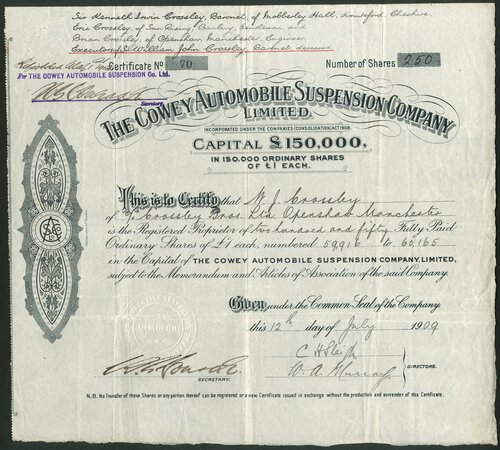 Sir Kenneth Irwin Crossley, Baronet, of Mobberley Hall, Knutsford, Cheshire
Eric Crossley, of Sun Rising, Banbury, Gentleman and
Brian Crossley, of Openshaw, Manchester, Engineer
Executors of Sir William John Crossley Baronet, deceased
Certificate No 70
Number of Shares 250
For THE COWEY AUTOMOBILE SUSPENSION Co. Ltd.
Secretary
THE COWEY AUTOMOBILE SUSPENSION COMPANY
LIMITED.
INCORPORATED UNDER THE COMPANIES (CONSOLIDATION) ACT 1908.
CAPITAL £150,000,
IN 150,000 ORDINARY SHARES
OF £1 EACH.
This is to Certify that W. J. Crossley
of Crossley Bros. Ltd. Openshaw Manchester
is the Registered Proprietor of two hundred and fifty Fully Paid
Ordinary Shares of £1 each, numbered 59916 to 60165
in the Capital of THE COWEY AUTOMOBILE SUSPENSION COMPANY, LIMITED,
subject to the Memorandum and Articles of Association of the said Company.
Given under the Common Seal of the Company
this 12th day of July 1909
C H Sleigh
W. A. Murray
DIRECTORS.
SECRETARY.
N.B. No Transfer of these Shares or any portion thereof can be registered or a new Certificate issued in exchange without the production and surrender of this Certificate.